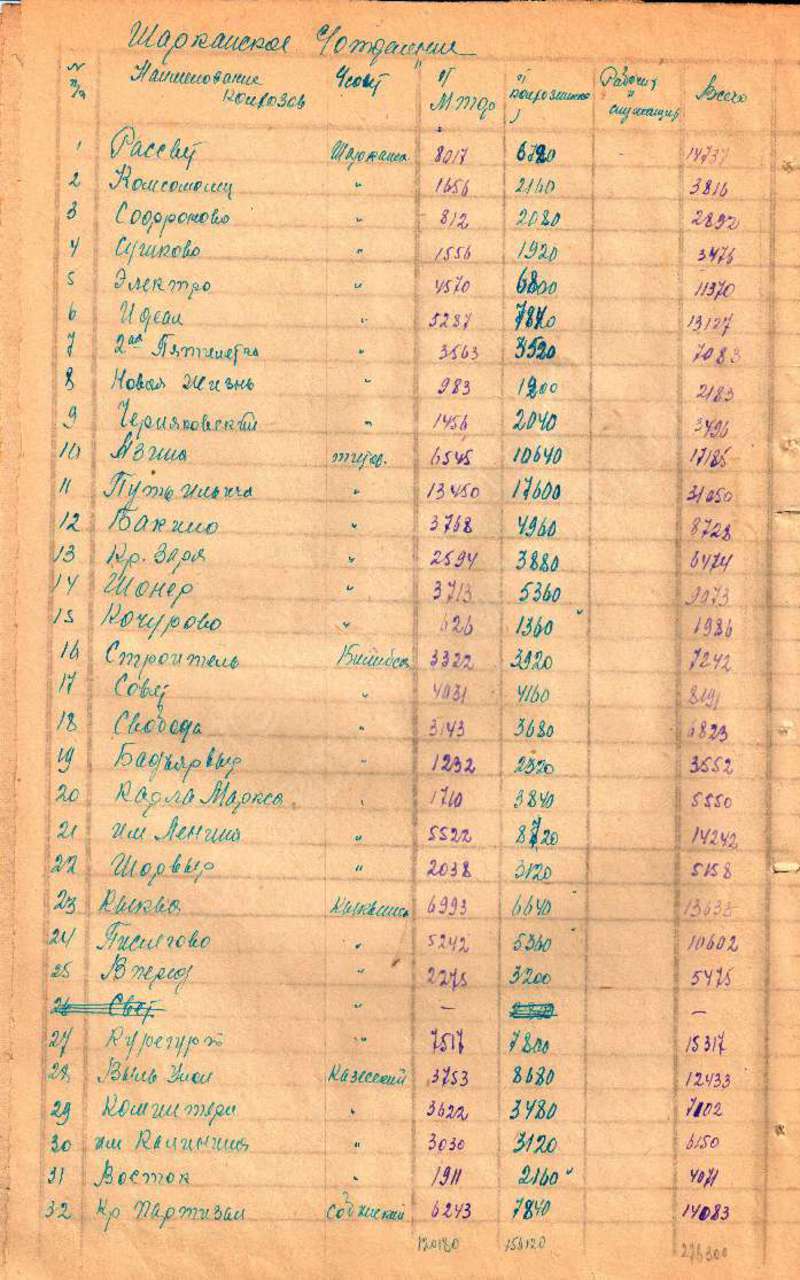 Шарканское Отделение
№ п/п Наименование колхозов с/совет от МТФ от колхозников Рабочих и служащих Всего
1 Рассвет Шарканск 8017 6720 14737
2 Комсомолец " 1656 2160 3816
3 Софроново " 812 2080 2892
4 Сушково " 1556 1920 3476
5 Электро " 4570 6800 11370
6 Идеал " 5287 7840 13127
7 2ая Пятилетка " 3563 3520 7083
8 Новая жизнь " 983 1200 2183
9 Черняховский " 1456 2040 3496
10 Азина титов. 6545 10640 17185
11 Путь Ильича " 13450 17600 31050
12 Бакино " 3768 4960 8728
13 Кр. Заря " 2594 3880 6474
14 Шонер " 3713 5360 9073
15 Кочурово " 626 1360 1986
16 Строитель 3322 3920 7242
17 Совет " 4031 4160 8191
18 Свобода " 3143 3680 6823
19 Бадярвыр " 1232 2320 3552
20 Карла Маркса " 1710 3840 5550
21 им Ленина " 5522 8720 14242
22 Шорвыр " 2038 3120 5158
23 Кыква Кыквинск 6993 6640 13633
24 Пислегово " 5242 5360 10602
25 Вперед " 2275 3200 5475
26 Свет " — —
27 Курегурт " 7517 7800 15317
28 Выль Ужон Казесский 3753 8680 12433
29 Коминтерн " 3622 3480 7102
30 им Калинина " 3030 3120 6150
31 Восток " 1911 2160 4071
32 Кр Партизан Собинский 6243 7840 14083
120180 156120 276300